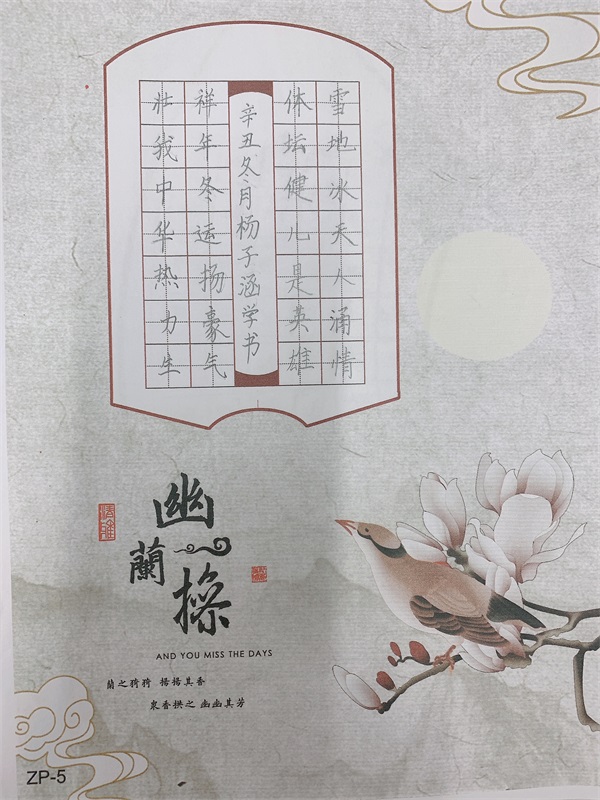 雪地冰天人涌情
体坛健儿是英雄
辛丑冬月杨子涵学书
祥年冬运扬豪气
壮我中华热力生
幽蘭操
AND YOU MISS THE DAYS
蘭之猗猗 揚揚其香
衆香拱之 幽幽其芳
ZP-5